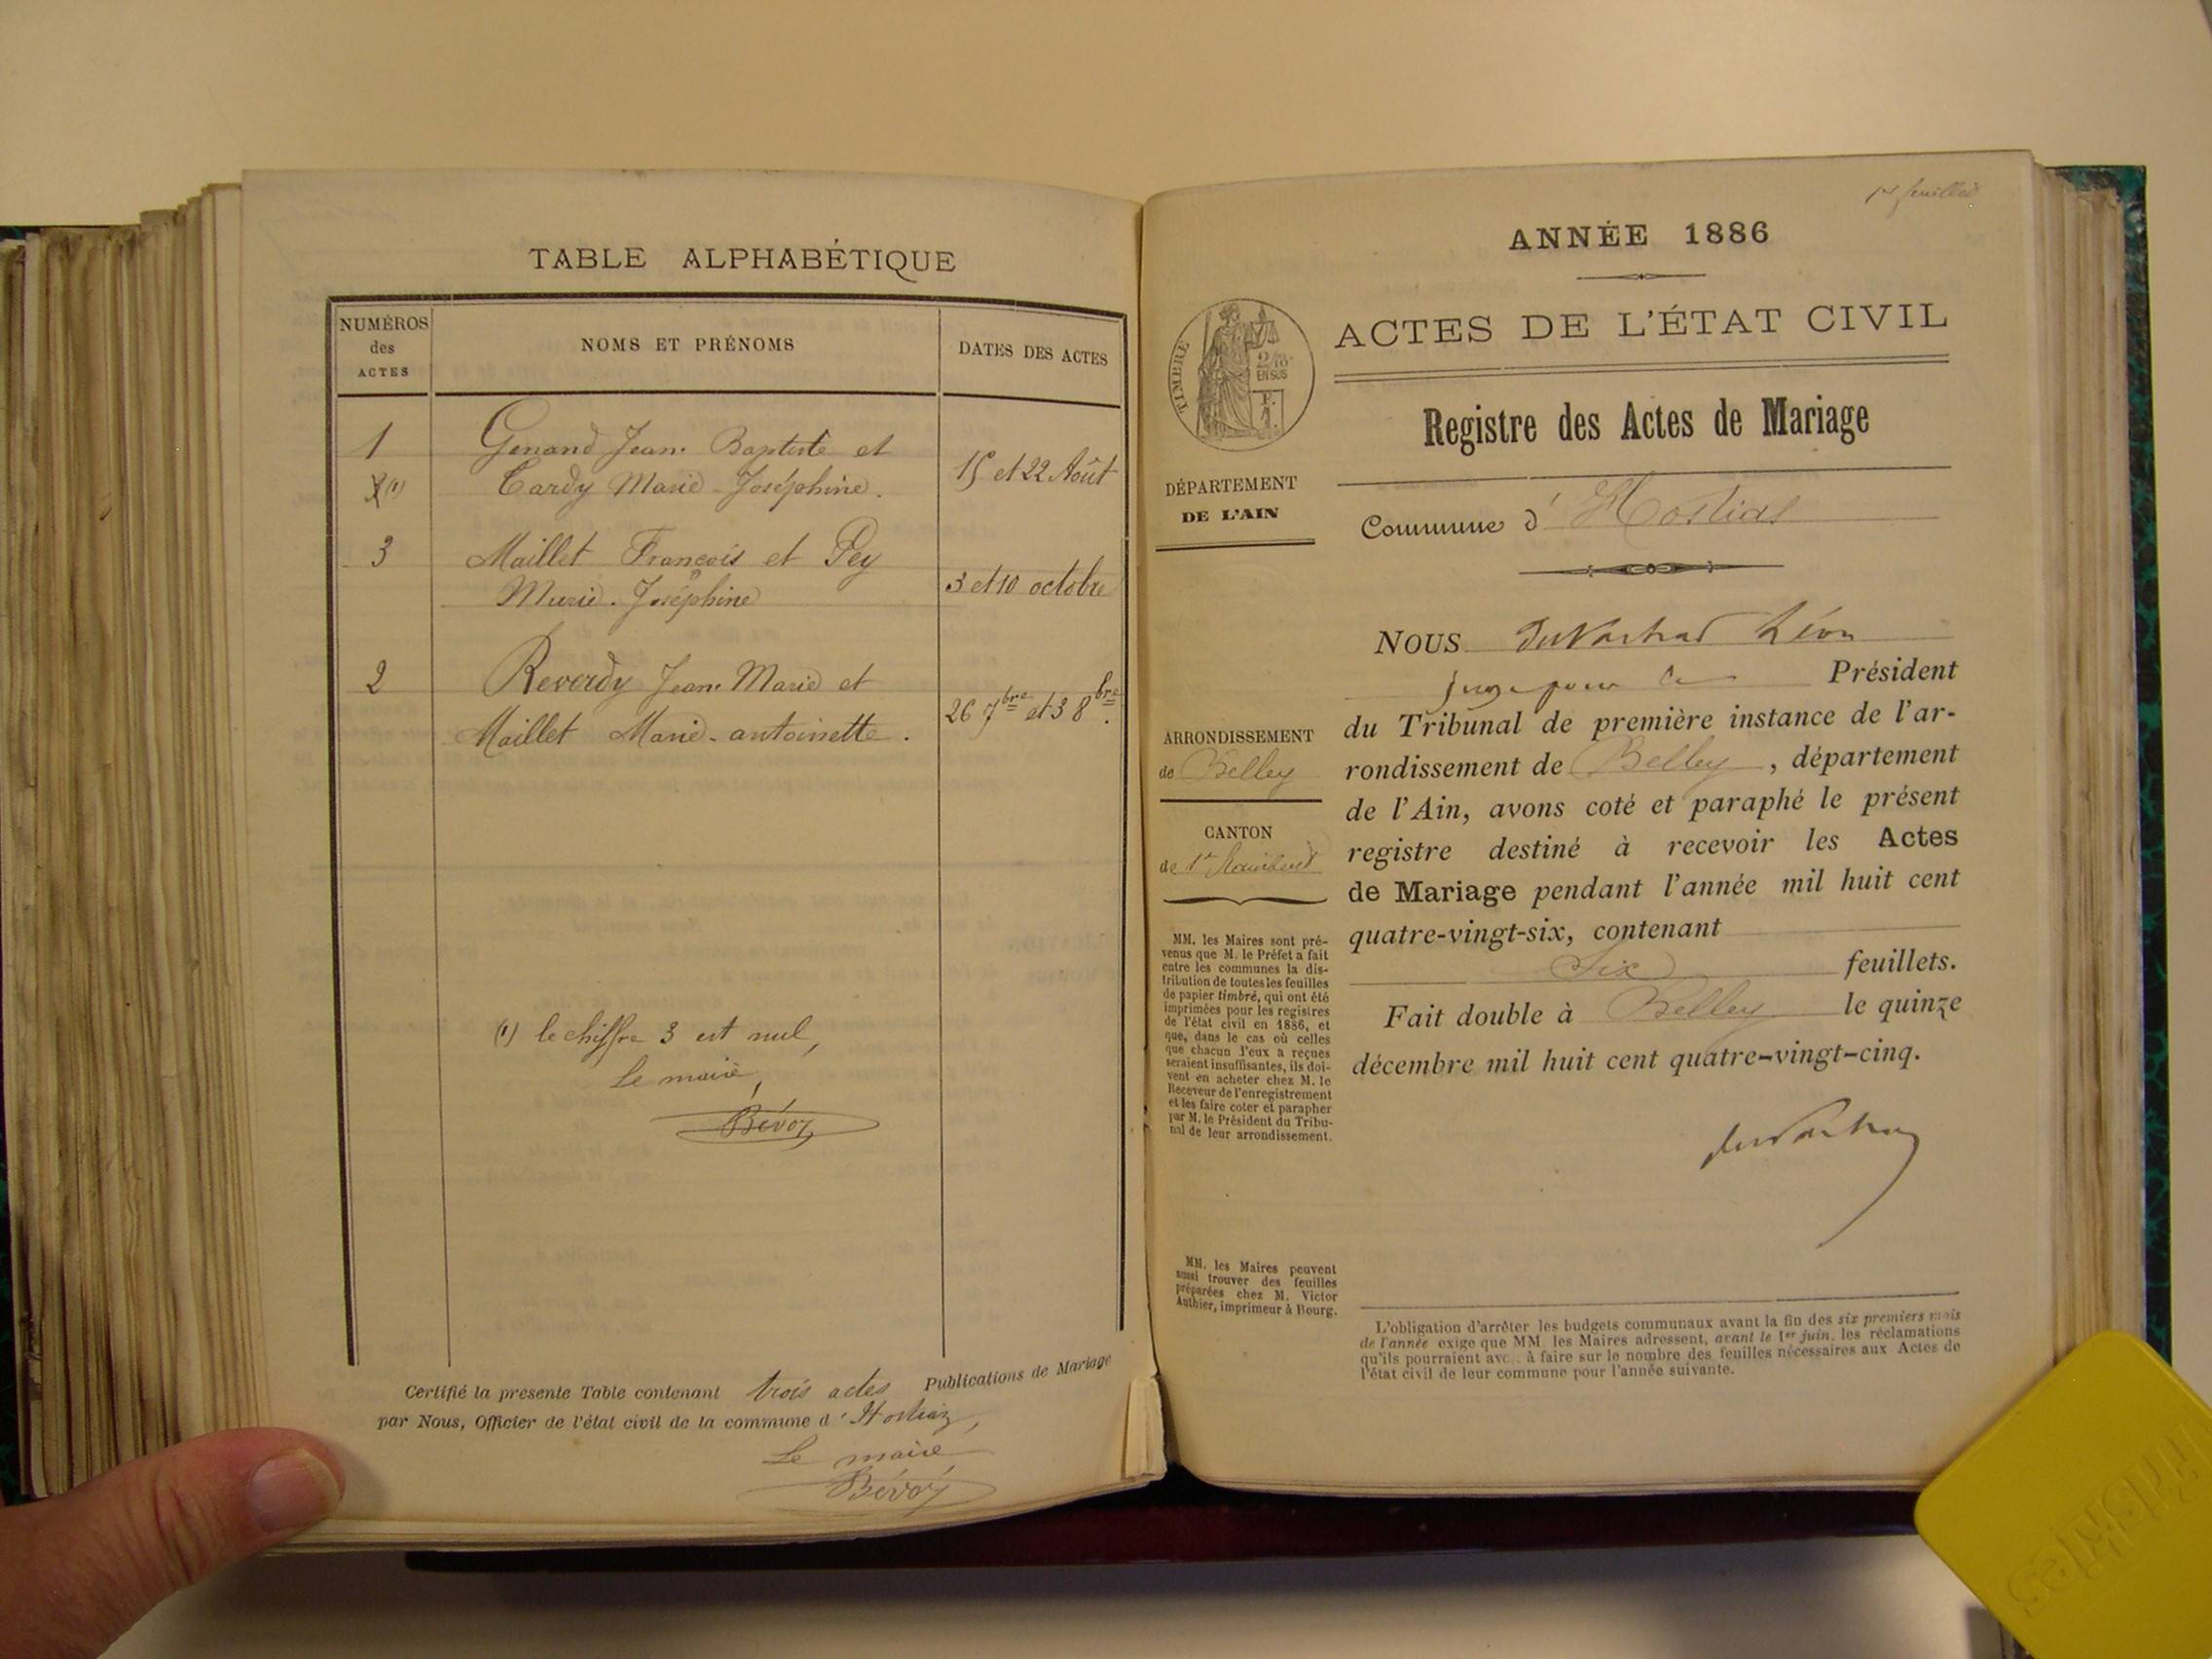 TABLE ALPHABÉTIQUE
NUMÉROS
des
ACTES
NOMS ET PRÉNOMS
DATES DES ACTES
1
Genand Jean-Baptiste et
(1)
Cardy Marie-Joséphine.
15 et 22 Août
3
Maillet François et Pey
Marie-Joséphine
3 et 10 octobre
2
Reverdy Jean-Marie et
Maillet Marie-antoinette.
26 7bre et 3 8bre.
(1) le chiffre 3 est nul,
Le maire,
Bévoz
Certifié la présente Table contenant trois actes Publications de Mariage
par Nous, Officier de l'état civil de la commune d'Hostiaz,
Le maire
Bévoz
1er feuillet
ANNÉE 1886
ACTES DE L'ÉTAT CIVIL
TIMBRE
2/10es
EN SUS
F.
1
Registre des Actes de Mariage
DÉPARTEMENT
DE L'AIN
Commune d'Hostias
NOUS Léon
juge pour le Président
du Tribunal de première instance de l'ar-
rondissement de Belley, département
de l'Ain, avons coté et paraphé le présent
registre destiné à recevoir les Actes
de Mariage pendant l'année mil huit cent
quatre-vingt-six, contenant
Six feuillets.
Fait double à Belley le quinze
décembre mil huit cent quatre-vingt-cinq.
ARRONDISSEMENT
de Belley
CANTON
de St Rambert
MM. les Maires sont pré-
venus que M. le Préfet a fait
entre les communes la dis-
tribution de toutes les feuilles
de papier timbré, qui ont été
imprimées pour les registres
de l'état civil en 1886, et
que, dans le cas où celles
que chacun d'eux a reçues
seraient insuffisantes, ils doi-
vent en acheter chez M. le
Receveur de l'enregistrement
et les faire coter et parapher
par M. le Président du Tribu-
nal de leur arrondissement.
MM. les Maires peuvent
aussi trouver des feuilles
préparées chez M. Victor
Authier, imprimeur à Bourg.
L'obligation d'arrêter les budgets communaux avant la fin des six premiers mois
de l'année exige que MM. les Maires adressent, avant le 1er juin, les réclamations
qu'ils pourraient avo.. à faire sur le nombre des feuilles nécessaires aux Actes de
l'état civil de leur commune pour l'année suivante.
Friskies